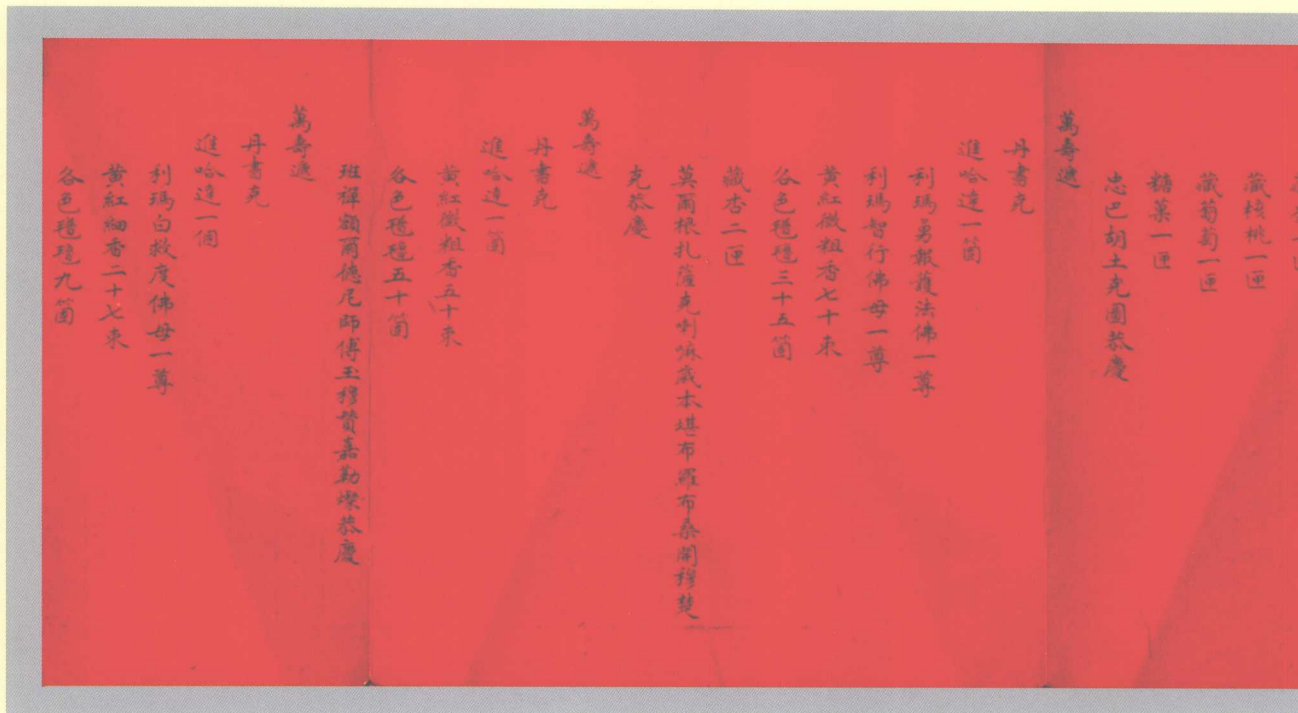 藏核桃一匣
藏葡萄一匣
糖菓一匣
忠巴胡土克圖恭慶
萬壽遞
丹書克
進哈達一箇
利瑪勇報護法佛一尊
利瑪智行佛母一尊
黃紅微粗香七十束
各色氆氌三十五箇
藏杏二匣
莫爾根扎薩克喇嘛歲本堪布羅布桑開穆楚
克恭慶
萬壽遞
丹書克
進哈達一箇
黃紅微粗香五十束
各色氆氌五十箇
班禪額爾德尼師傅玉穆贊嘉勒燦恭慶
萬壽遞
丹書克
進哈達一個
利瑪白救度佛母一尊
黃紅細香二十七束
各色氆氌九箇